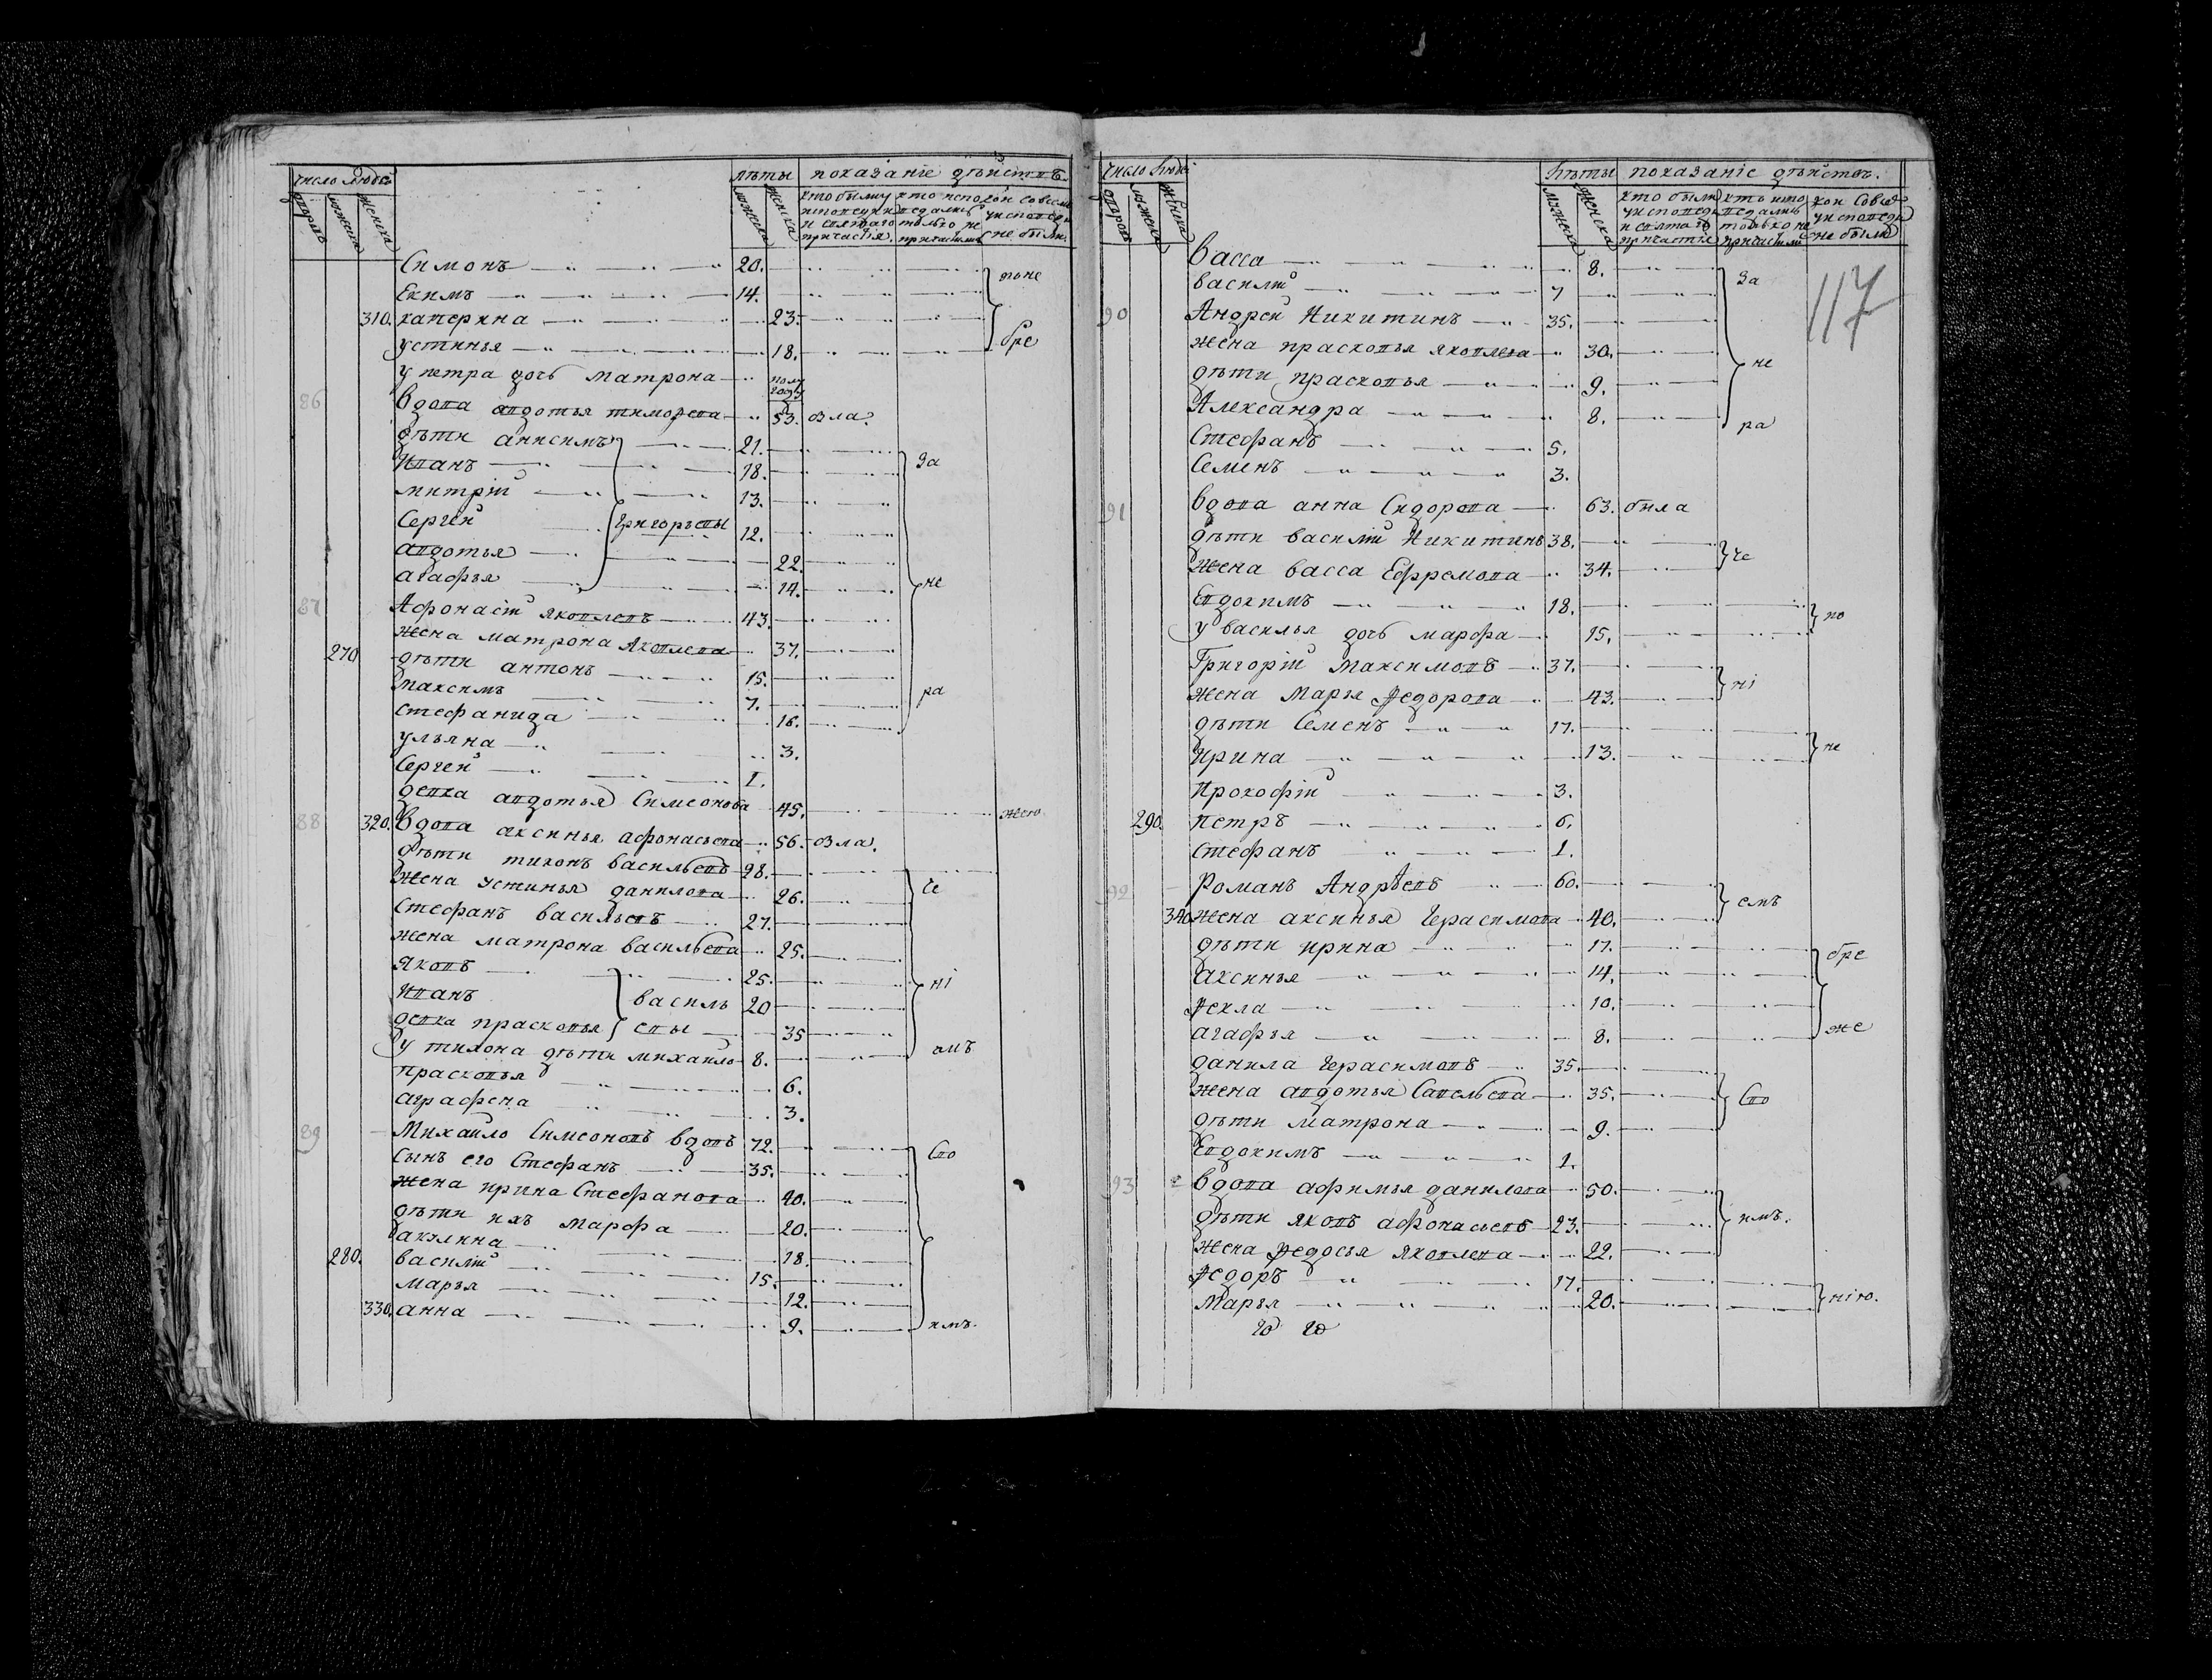 число людей лѣты показаніе дѣйствъ.
дворовъ мужеска женска мужеска женска кто были у исповеди и святаго причастія. кто исповедались только не причастились кои совсемъ у исповеди не были.
Симонъ 20. поне
Екимъ 14.
310. катерина 23.
устинья 18. бре
у петра дочь матрона полу году
86 вдова авдотья тимофева 53. была
дѣти анисимъ 21.
Иванъ 18. За
митрій 13.
Сергей Григорьевы 12.
авдотья 22.
агафья 14. не
87 Афонасій яковлевъ 43.
жена матрона яковлева 37.
270 дѣти антонъ 15.
максимъ 7. ра
стефанида 16.
ульяна 3.
Сергей 1.
девка авдотья Симеонова 45. жею.
88 320. вдова аксинья афонасьева 56. была.
дѣти тихонъ васильевъ 28.
жена устинья данилова 26. че
стефанъ васильевъ 27.
жена матрона васильева 25.
яковъ 25. ні
Иванъ василь 20
девка прасковья евы 35
у тихона дѣти михайло 8. амъ
прасковья 6.
аграфена 3.
89 Михайло Симеоновъ вдовъ 72. Спо
Сынъ его Стефанъ 35.
жена ирина Стефанова 40.
дѣти ихъ марфа 20.
акилина 18.
280. василій 15.
марья 12.
330. анна 9. имъ.
число людей лѣты показаніе дѣйствъ.
дворовъ мужеска женска мужеска женска кто были у исповеди и святаго причастія кто исповедались только не причастились кои совсемъ у исповеди не были
васса 8. За
василій 7
117
90 Андрей Никитинъ 35.
жена прасковья яковлева 30.
дѣти прасковья 9. не
Александра 8. ра
Стефанъ 5.
Семенъ 3.
91 вдова анна Сидорова 63. была
дѣти василій Никитинъ 38.
жена васса Ефремова 34. че
Евдокимъ 18. по
у василья дочь марфа 15.
Григорій Максимовъ 37.
жена Марья Федорова 43. ні
дѣти Семенъ 17.
Ирина 13. не
Прокофій 3.
290. петръ 6.
стефанъ 1.
92 Романъ Андрѣевъ 60. емъ
340 жена аксинья Герасимова 40.
дѣти ирина 17. бре
аксинья 14.
Фекла 10.
агафья 8. же
данила Герасимовъ 35.
жена авдотья Савельева 35. Спо
дѣти матрона 9.
Евдокимъ 1.
93 вдова афимья данилова 50.
дѣти яковъ афонасьевъ 23. имъ.
жена Федосья яковлева 22.
Федоръ 17.
Марья 20. нію.